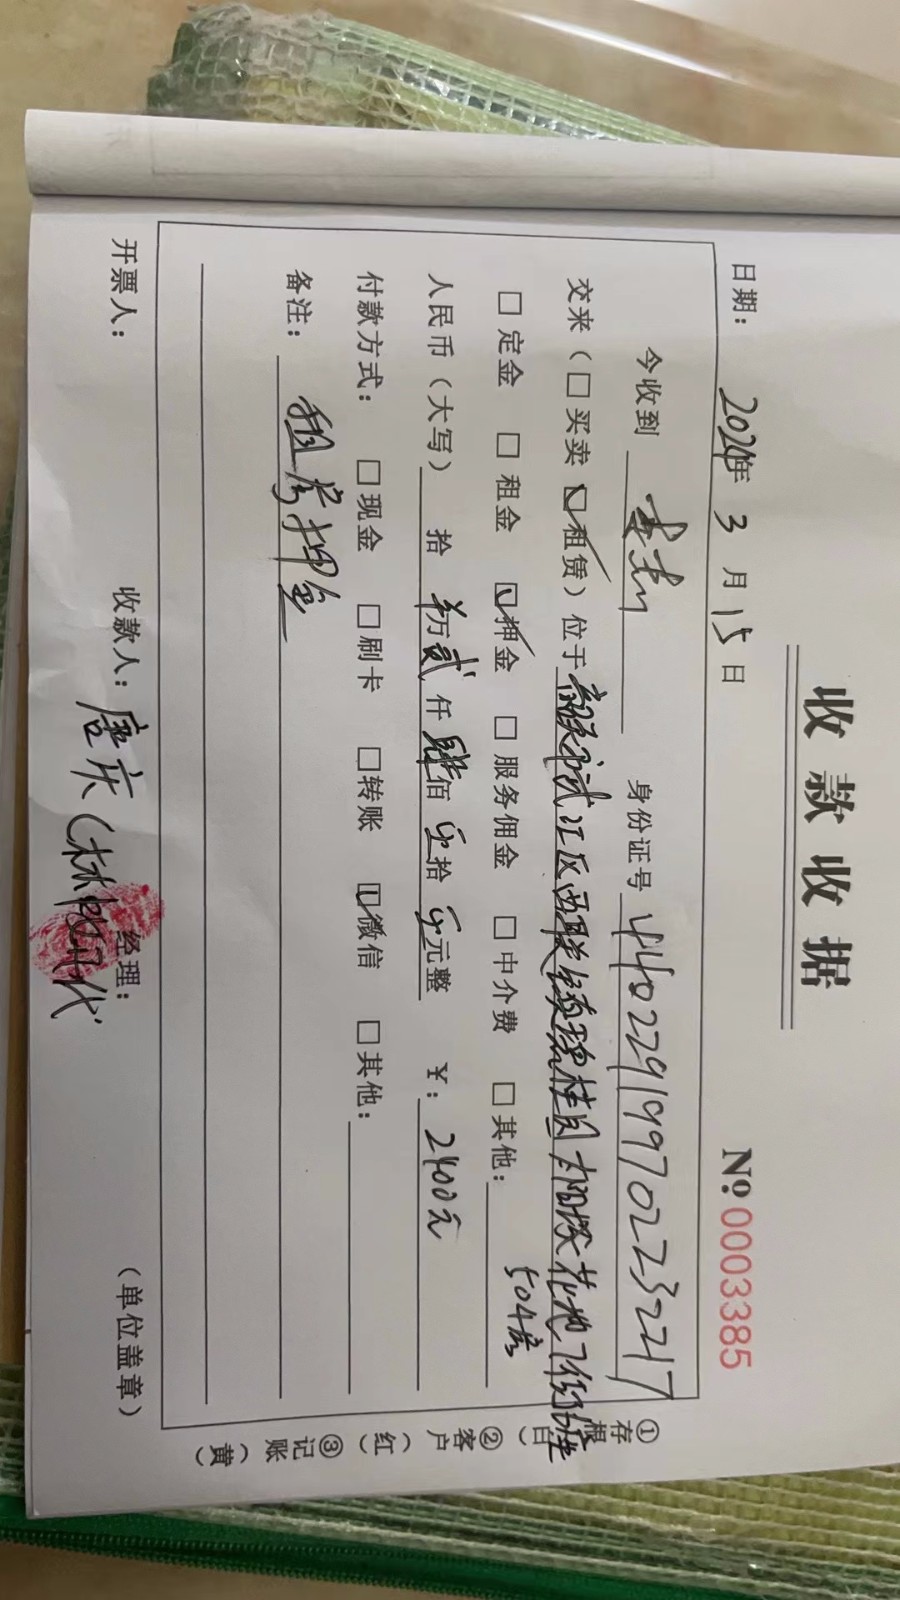 收款收据
日期：2024年 3 月 15 日 №0003385
今收到 身份证号 440229199702233217
交来（□买卖 ☑租赁）位于韶关市武江区西联镇碧桂园太阳城花地7街6座
504房
□定金 □租金 ☑押金 □服务佣金 □中介费 □其他：
人民币（大写） 拾 万 贰 仟 肆 佰 零 拾 零 元整 ¥：2400元
付款方式： □现金 □刷卡 □转账 ☑微信 □其他：
备注：租房押金
开票人： 收款人：唐庆 经理： （单位盖章）
①存根（白） ②客户（红） ③记账（黄）